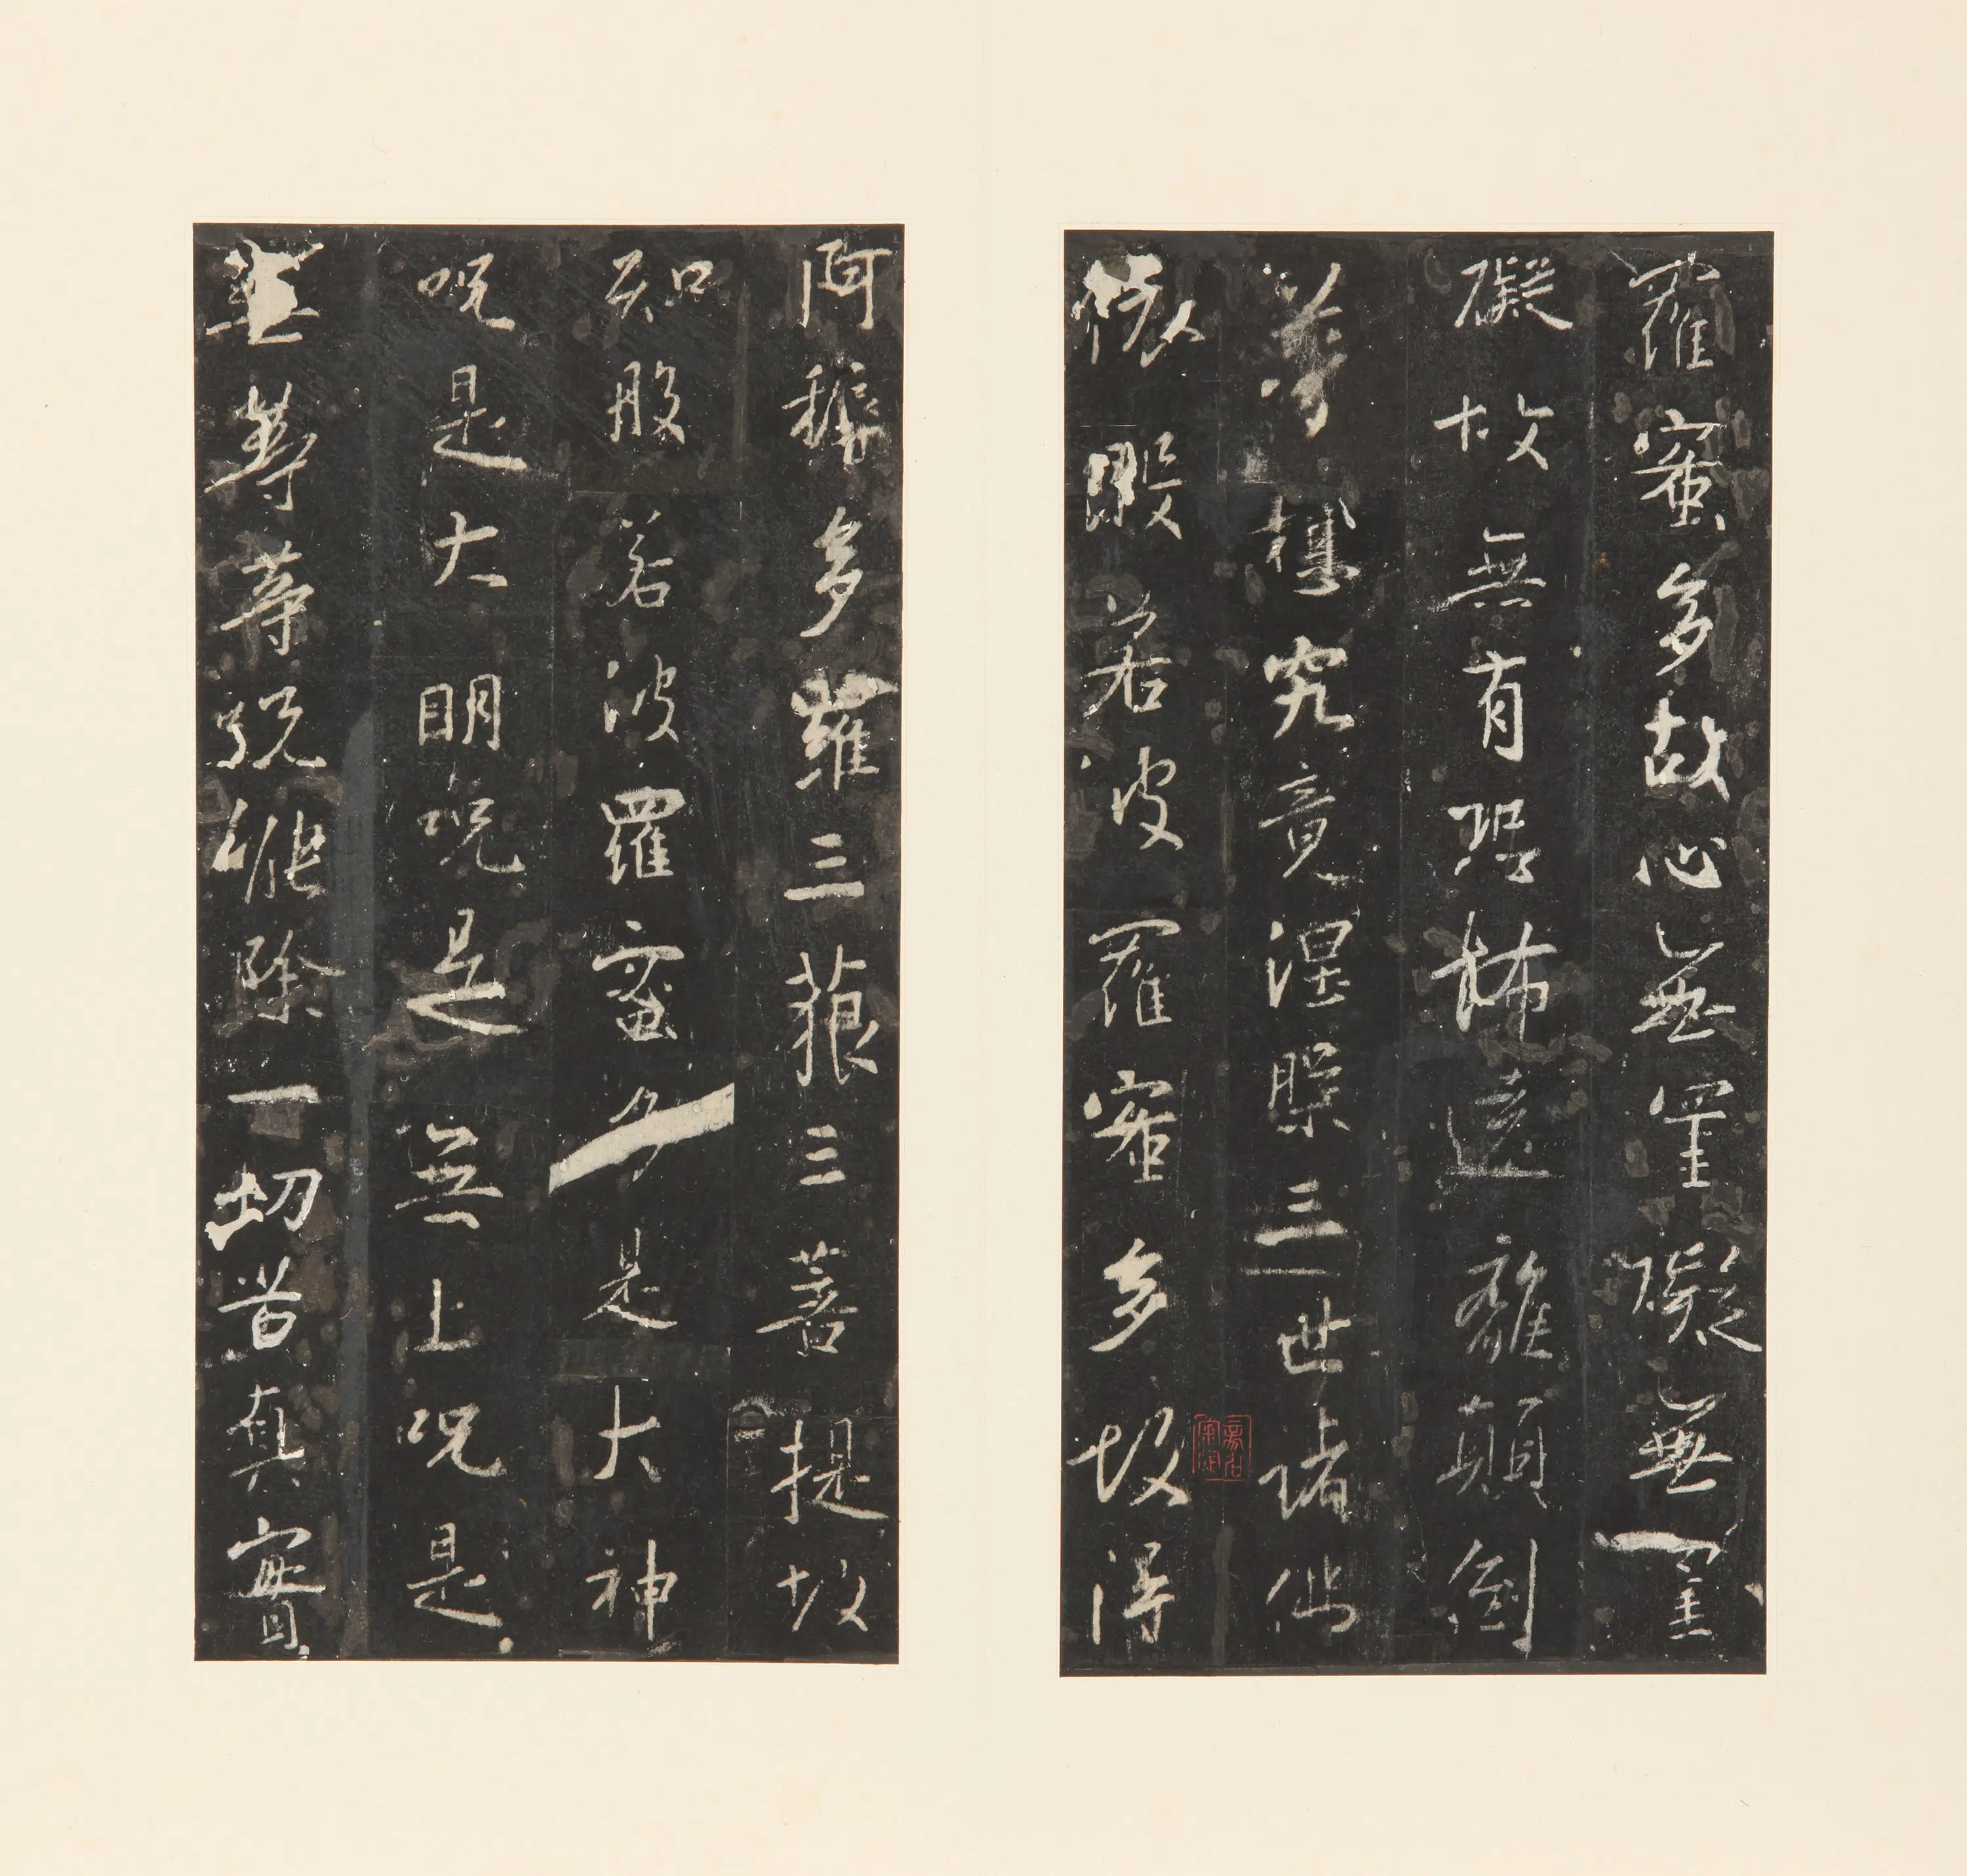 羅蜜多故心無罣礙無罣
礙故無有恐怖遠離顛倒
夢想究竟涅槃三世諸佛
依般若波羅蜜多故得
阿耨多羅三藐三菩提故
知般若波羅蜜多是大神
呪是大明呪是無上呪是
無等等呪能除一切苦真實